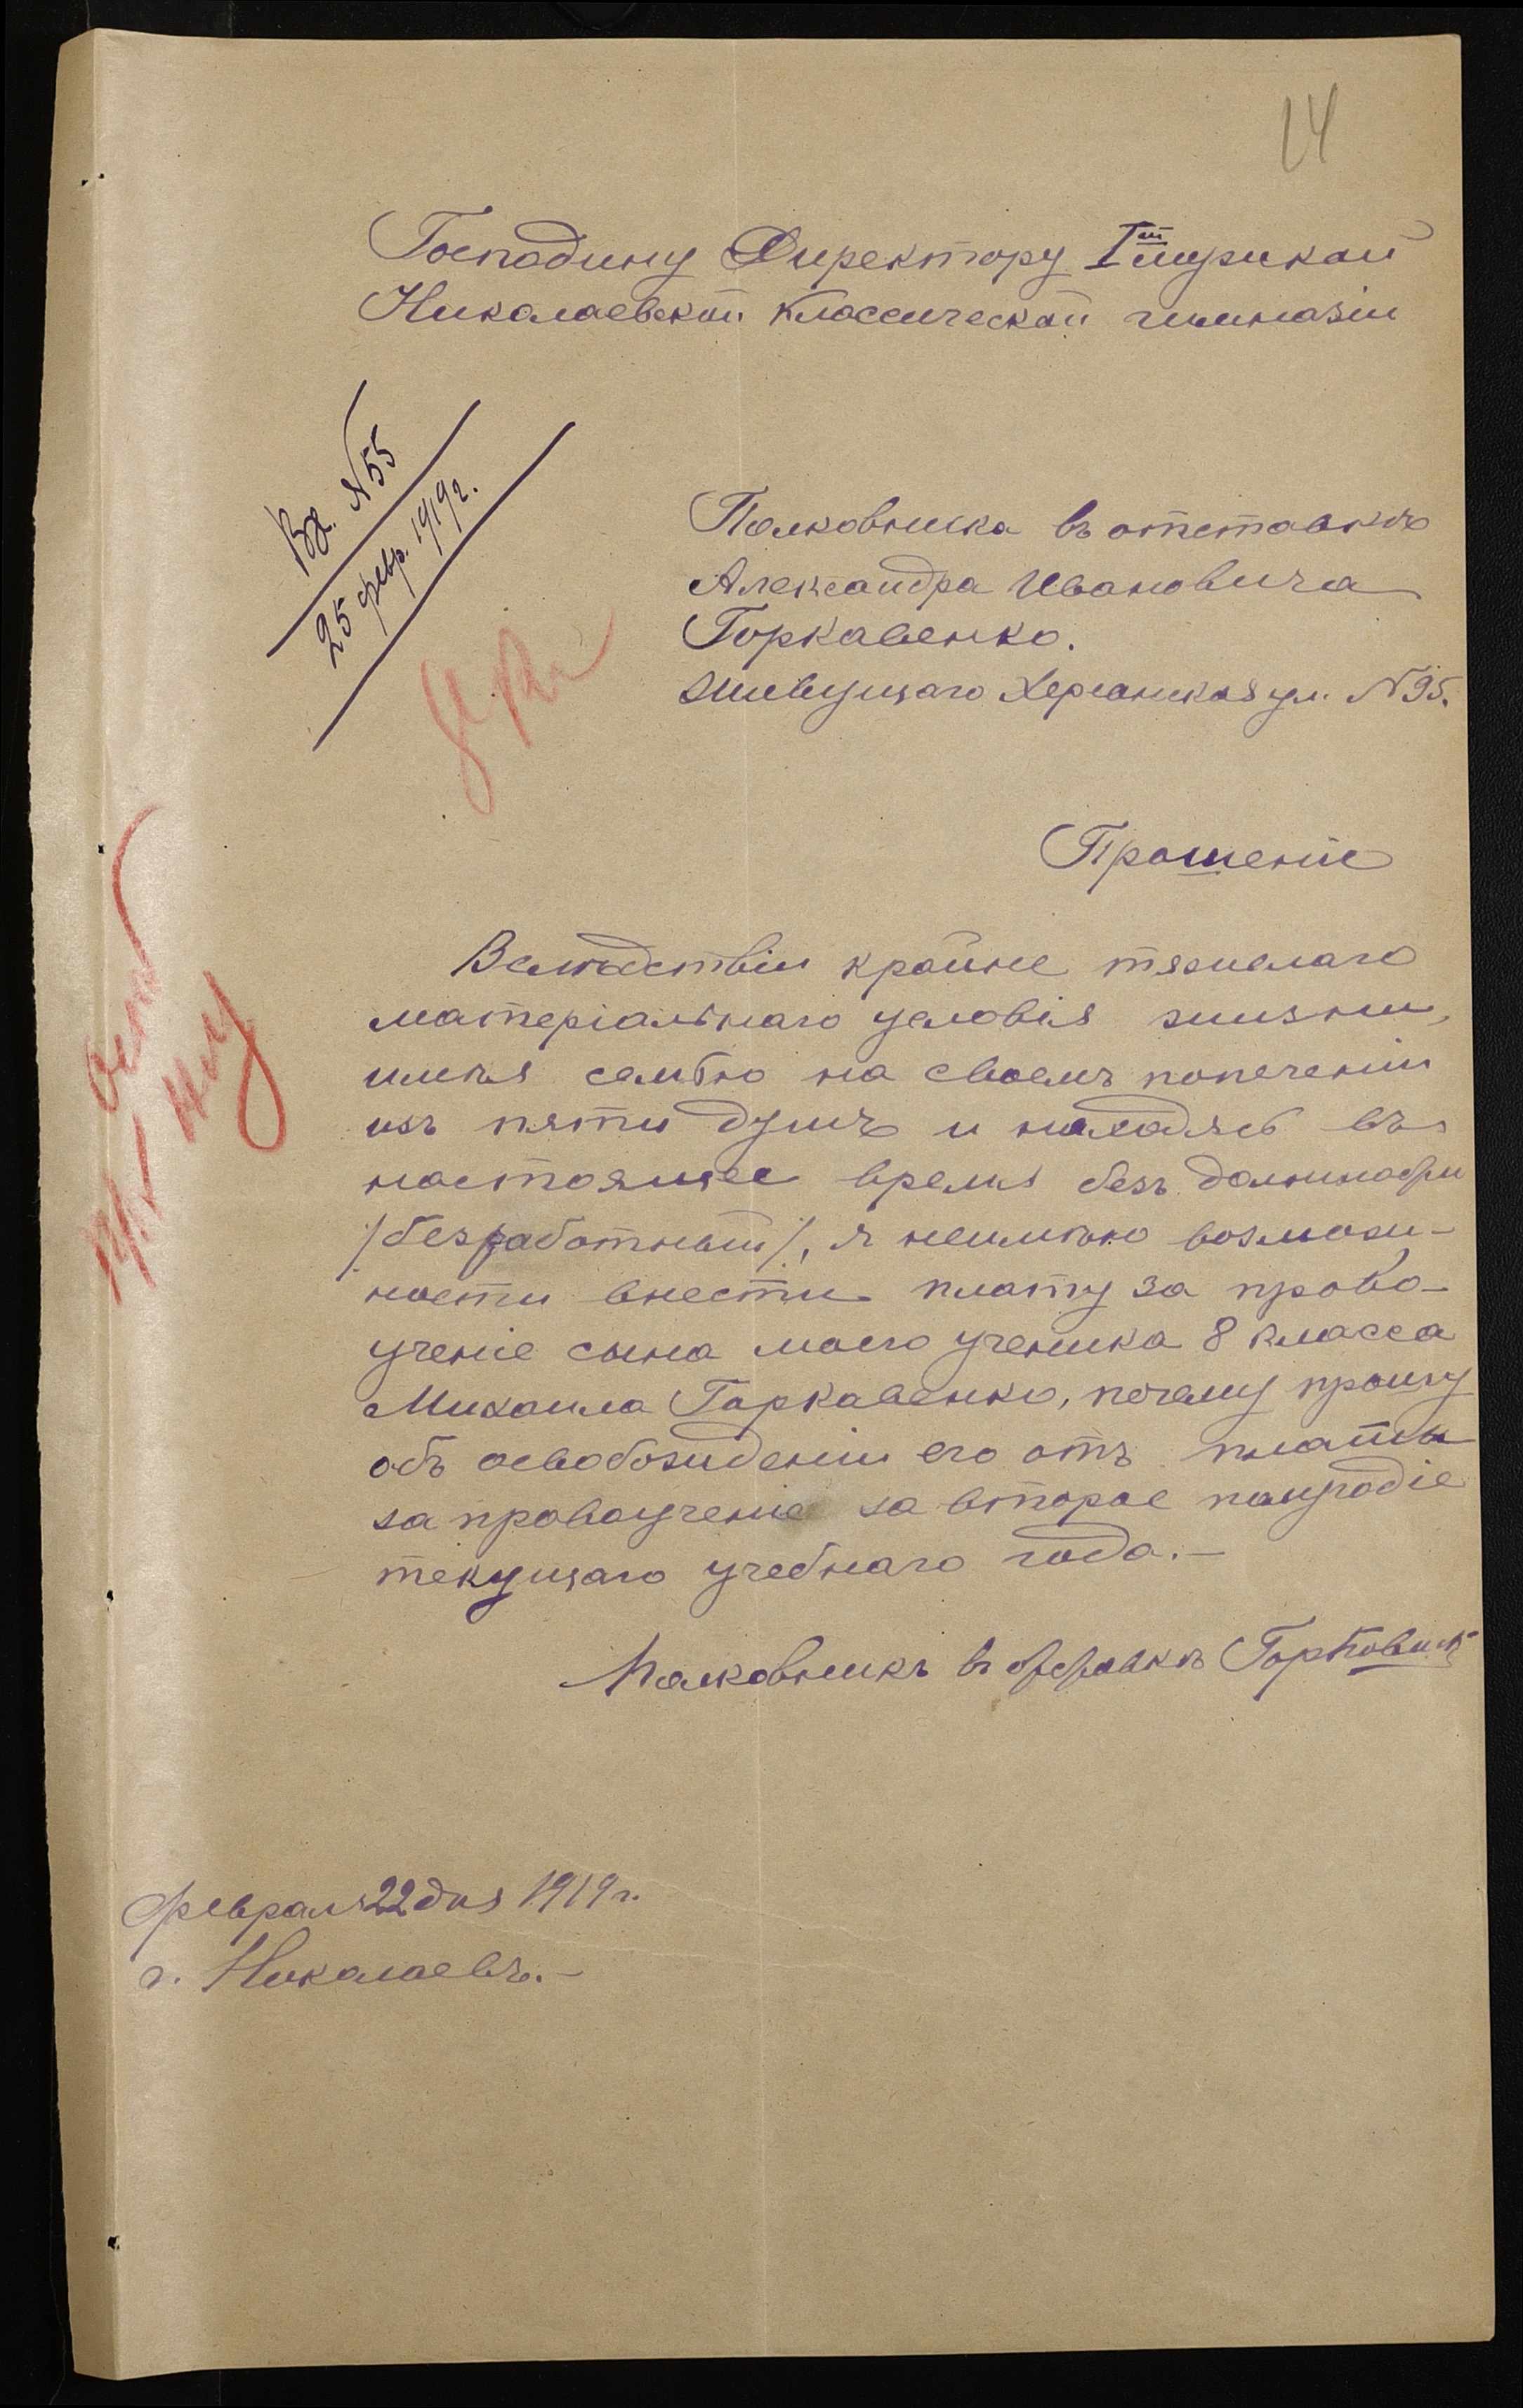 14
Господину Директору I^ой мужской
Николаевской Классической гимназіи
Вх. N 55
25 февр. 1919 г.
Полковника въ отставкѣ
Александра Ивановича
Горкавенко.
Живущаго Херсонская ул. N 95.
Прошеніе
Вслѣдствіи крайне тяжелаго
матеріальнаго условія жизни,
имѣя семью на своемъ попеченіи
изъ пяти душъ и находясь въ
настоящее время безъ должности
/безработный/, я неимѣю возмож-
ности внести плату за право-
ученіе сына моего ученика 8 класса
Михаила Горкавенко, почему прошу
объ освобожденіи его отъ платы
за правоученіе за второе полугодіе
текущаго учебнаго года.—
Полковникъ въ отставкѣ
Февраля 22 дня 1919 г.
г. Николаевъ.—